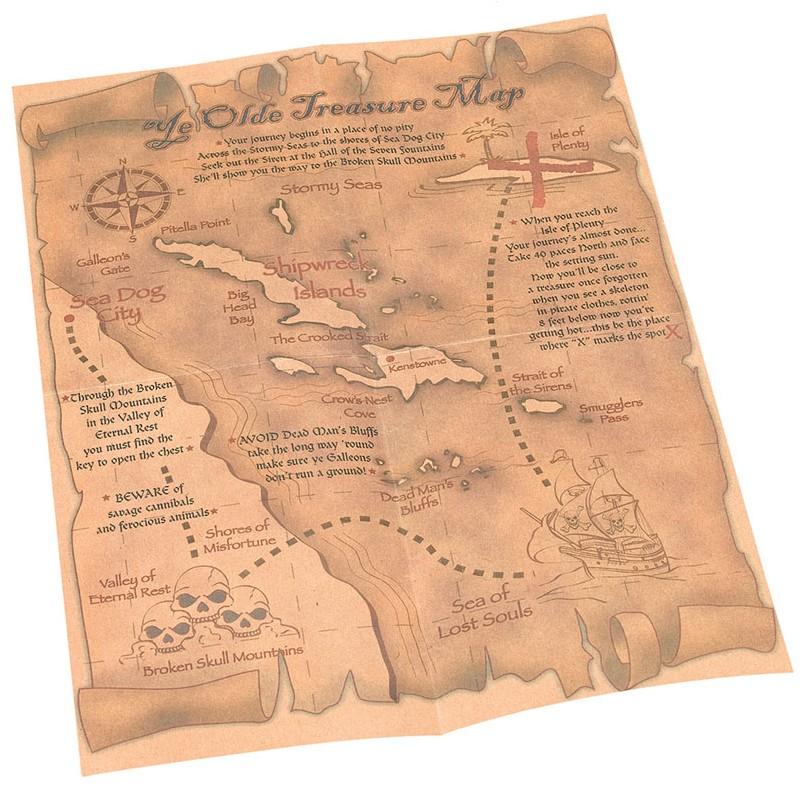 Ye Olde Treasure Map
Your journey begins in a place of no pity
Across the Stormy Seas to the shores of Sea Dog City
Seek out the Siren at the Hall of the Seven Fountains
She'll show you the way to the Broken Skull Mountains
Isle of
Plenty
N
W
E
S
Stormy Seas
Pitella Point
Galleon's
Gate
Sea Dog
City
Big
Head
Bay
Shipwreck
Islands
When you reach the
Isle of Plenty
Your journey's almost done...
Take 40 paces North and face
the setting sun.
Now you'll be close to
a treasure once forgotten
when you see a skeleton
in pirate clothes, rottin'
8 feet below now you're
getting hot...this be the place
where "X" marks the spot X
The Crooked Strait
Kenstowne
Crow's Nest
Cove
Strait of
the Sirens
Smugglers
Pass
Through the Broken
Skull Mountains
in the Valley of
Eternal Rest
you must find the
key to open the chest
AVOID Dead Man's Bluffs
take the long way 'round
make sure ye Galleons
don't run a ground!
Dead Man's
Bluffs
BEWARE of
savage cannibals
and ferocious animals
Shores of
Misfortune
Valley of
Eternal Rest
Sea of
Lost Souls
Broken Skull Mountains